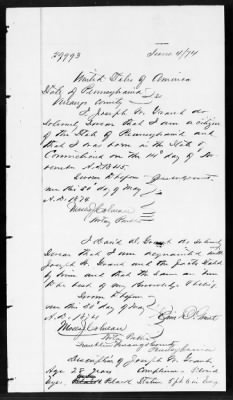 29993 June 4/74
United States of America
State of Pennsylvania
Venango County
I Joseph W. Grant do
solemnly swear that I am a citizen
of the State of Pennsylvania and
that I was born in the State of
Connecticut on the 14" day of
A.D. 1845
Sworn & before
me this 28" day of May
A.D. 1874
Notary Public
I David D. Grant do solemnly
swear that I am acquainted with
Joseph W. Grant and the facts stated
by him and that the same are true
to the best of my knowledge & belief
Sworn & before
me this 28" day of May
A.D. 1874
Notary Public
Franklin Venango County
Pennsylvania
description of Joseph W. Grant
Age 28 years Complexion
Eyes Black Stature 5ft 6 in